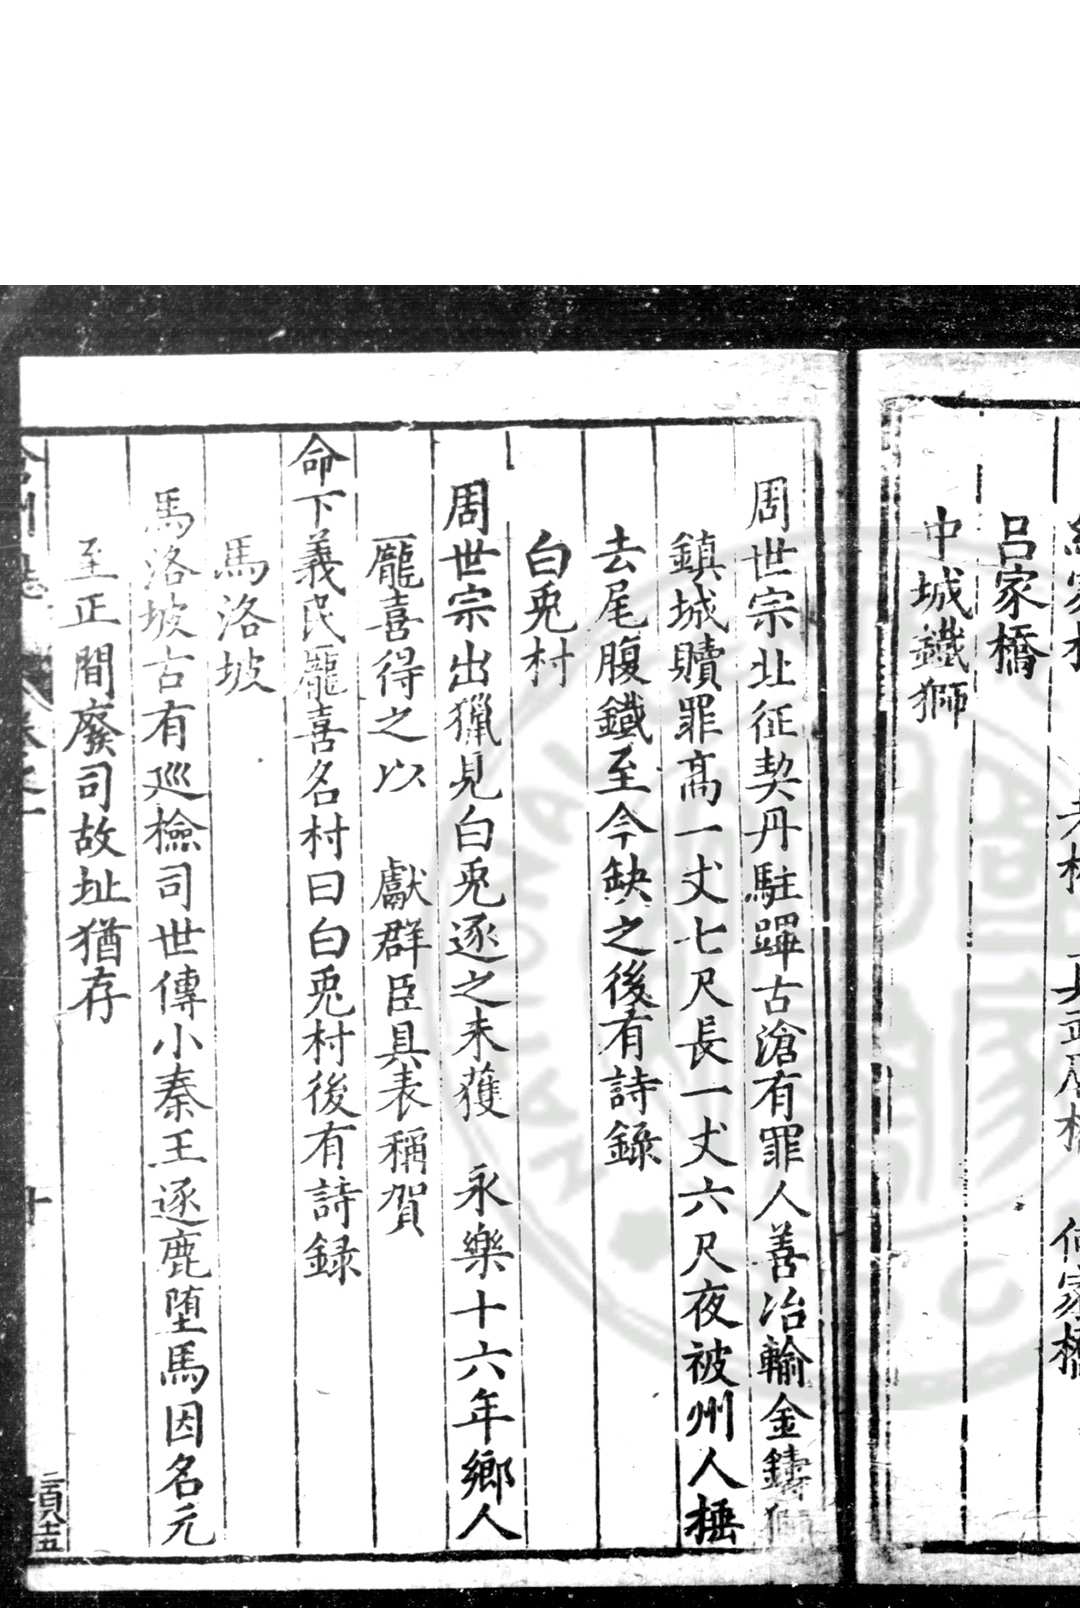 呂家橋
中城鐵獅
周世宗北征契丹駐蹕古滄有罪人善冶輸金鑄獅
鎮城贖罪髙一丈七尺長一丈六尺夜被州人棰
去尾腹鐵至今缺之後有詩錄
白兎村
周世宗出獵見白兎逐之未獲 永樂十六年鄉人
龐喜得之以 獻群臣具表稱賀
命下義民龐喜名村曰白兎村後有詩録
馬洛坡
馬洛坡古有廵檢司世傳小秦王逐鹿墮馬因名元
至正間廢司故址猶存